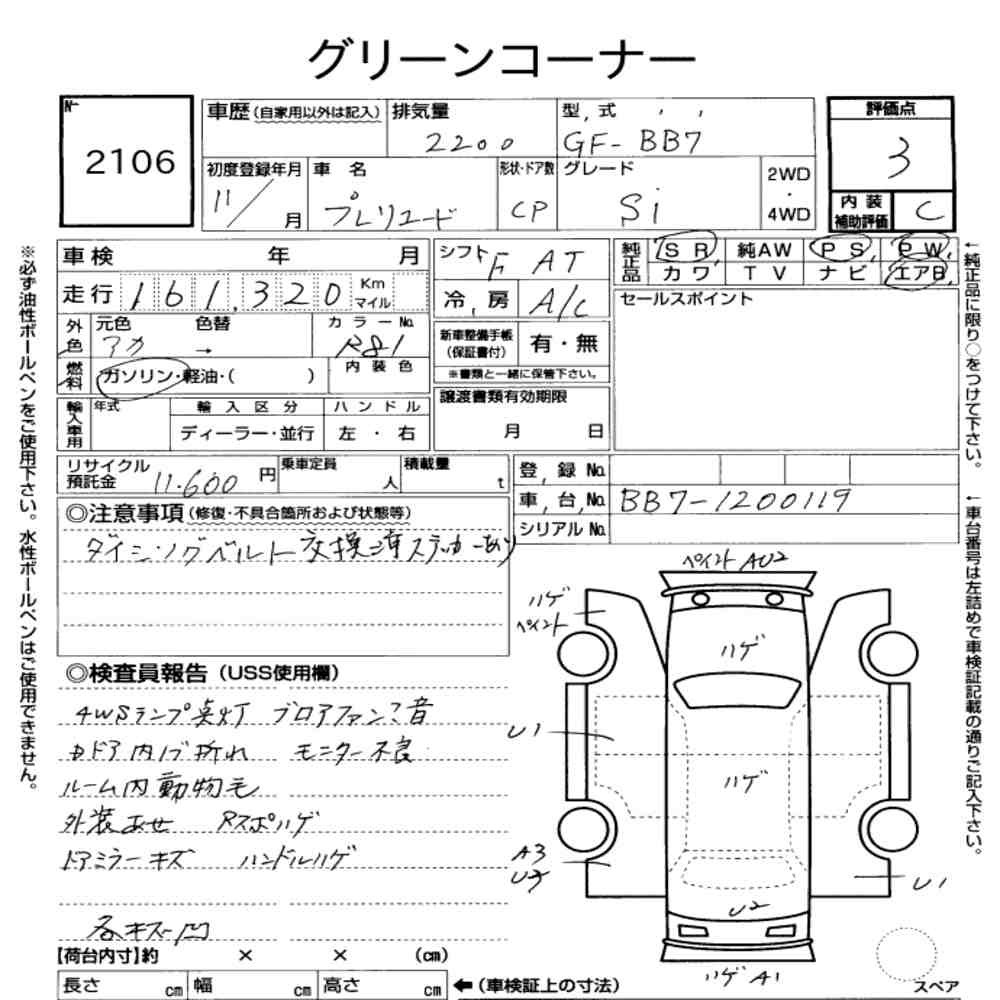 グリーンコーナー
No 2106
車歴(自家用以外は記入) 排気量 2200 型式 GF-BB7
初度登録年月 11/ 月 車名 プレリュード 形状・ドア数 CP グレード Si 2WD・4WD
評価点 3
内装補助評価 C
車検 年 月
走行 161,320 Km マイル
外色 元色 アカ 色替 → カラーNo. R81
燃料 ガソリン・軽油・( ) 内装色
輸入車用 年式 輸入区分 ディーラー・並行 ハンドル 左・右
シフト F AT
冷,房 A/C
新車整備手帳(保証書付) 有・無
※書類と一緒に保管下さい。
譲渡書類有効期限 月 日
純正品 SR 純AW PS PW
カワ TV ナビ エアB
セールスポイント
リサイクル預託金 11.600 円 乗車定員 人 積載量 t
登録No.
車台No. BB7-1200119
シリアルNo.
◎注意事項(修復・不具合箇所および状態等)
タイミングベルト交換済ステッカーあり
◎検査員報告(USS使用欄)
4WSランプ点灯 ブロアファン?音
内ドア内ノブ折れ モニター不良
ルーム内動物毛
外装あせ Rスポハゲ
ドアミラーキズ ハンドルハゲ
各キズ凹
【荷台内寸】約 × × (cm)
長さ cm 幅 cm 高さ cm ←(車検証上の寸法)
ペイント AU2
ハゲ
ペイント
ハゲ
U1
ハゲ
A3
U3
U1
U2
ハゲ A1
スペア
※必ず油性ボールペンをご使用下さい。水性ボールペンはご使用できません。
←純正品に限り○をつけて下さい。
←車台番号は左詰めで車検証記載の通りご記入下さい。